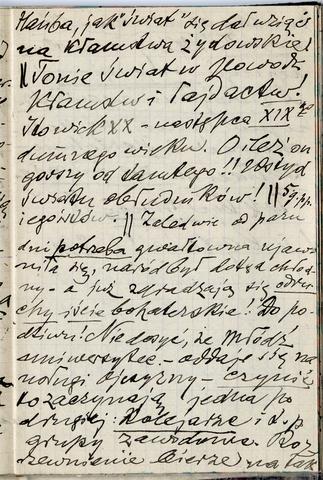 Hańba, jak "świat" się dał wziąć
na kłamstwa żydowskie!
|| Tonie świat w powodzi
kłamstw i łajdactw!
To wiek XX – następca XIX-go
durnego wieku. O ileż on
gorszy od tamtego!! Wstyd
świata obłudników! ||
|| Zaledwie od paru
dni potrzeba gwałtowna ujaw
niła się, naród był dotąd chłod
ny – a już zdradzają się odru
chy iście bohaterskie! Do po
dziwu! Nie dosyć, że młodź
uniwersytec – oddaje się na
usługi ojczyzny – czynić
to zaczynają jedna po
drugiej: Kolejarze i t. p.
grupy zawodowe. Roz
rzewnienie bierze na tak